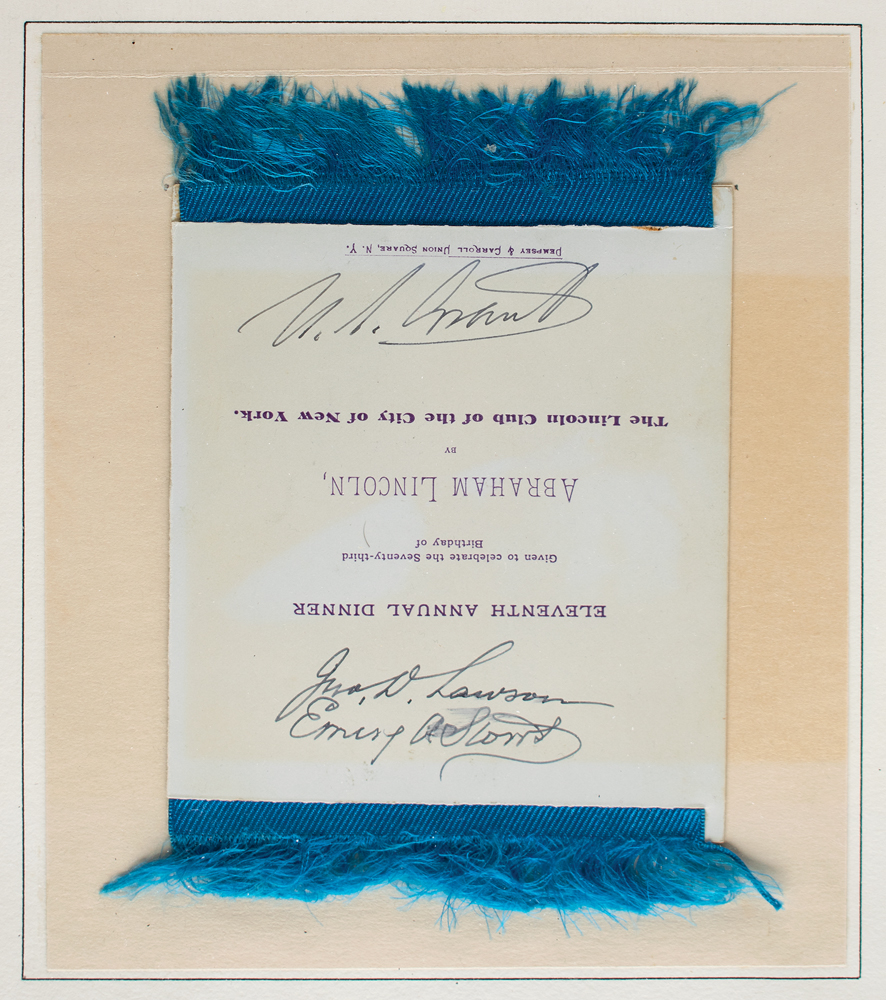 ELEVENTH ANNUAL DINNER
Given to celebrate the Seventy-third
Birthday of
ABRAHAM LINCOLN,
BY
The Lincoln Club of the City of New York.
DEMPSEY & CARROLL UNION SQUARE, N. Y.
U. S. Grant
Jno. D. Lawson
Emery A Storrs